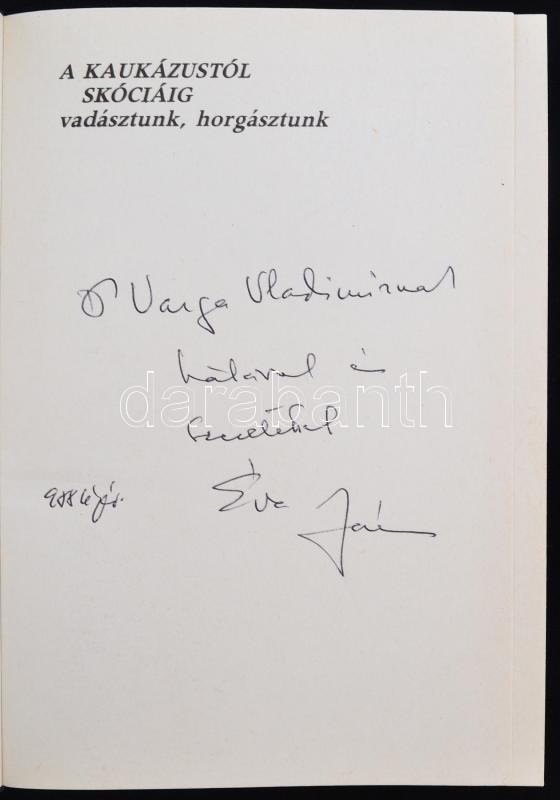 A KAUKÁZUSTÓL
SKÓCIÁIG
vadásztunk, horgásztunk
Dr Varga Vladimirnak
hálával és
darabanth
szeretettel
Éva